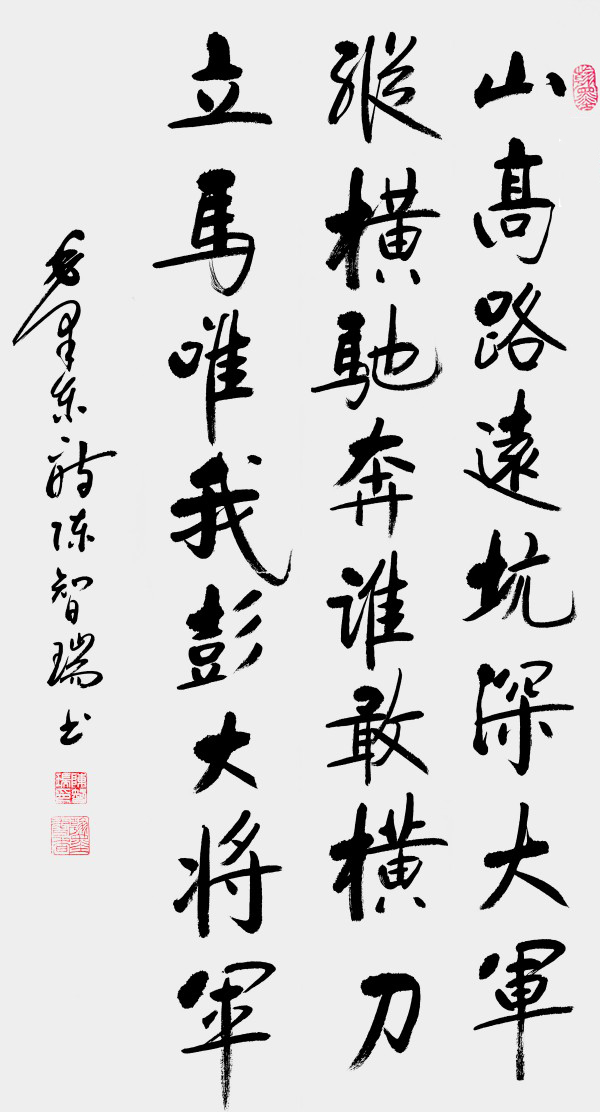 山高路遠坑深大軍
縱横馳奔誰敢横刀
立馬唯我彭大将軍
毛泽东诗陈智瑞书